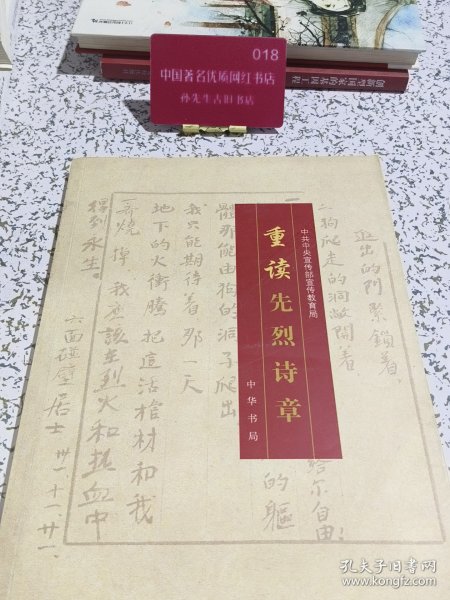 018
中国著名优质网红书店
孙先生古旧书店
创新型国家的基因工程
中共中央宣传部宣传教育局
重读先烈诗章
中华书局
进出的门紧锁着，
狗爬走的洞敞开着
给尔自由！
的軀
體那能由狗的洞子爬出
我只能期待着那一天
地下的火衝騰把這活棺材和我
一齊燒
我應該在烈火和熱血中
得到永生。
六面碰壁居士 卅一 十一 廿一
孔夫子旧书网
www.kongfz.com